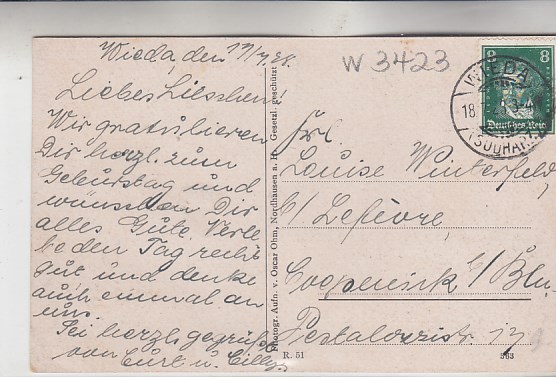 Wieda, den 17/4.28.
Liebes Lieschen!
Wir gratulieren
Dir herzl. zum
Geburtstag und
wünschen Dir
alles Gute. Verle-
be den Tag recht
gut und denke
auch einmal an
uns.
Sei herzl. gegrüßt
von Curt u. Cilly.
Photogr. Aufn. v. Oscar Ohm, Nordhausen a. H. Gesetzl. geschützt
R. 51
W 3423
8 8
Deutsches Reich
WIEDA
18.
(SÜDHARZ)
Frl.
Louise Winterfeld,
b/ Lefèvre,
Coepenick b/ Bln.
Pestalozzistr.
363